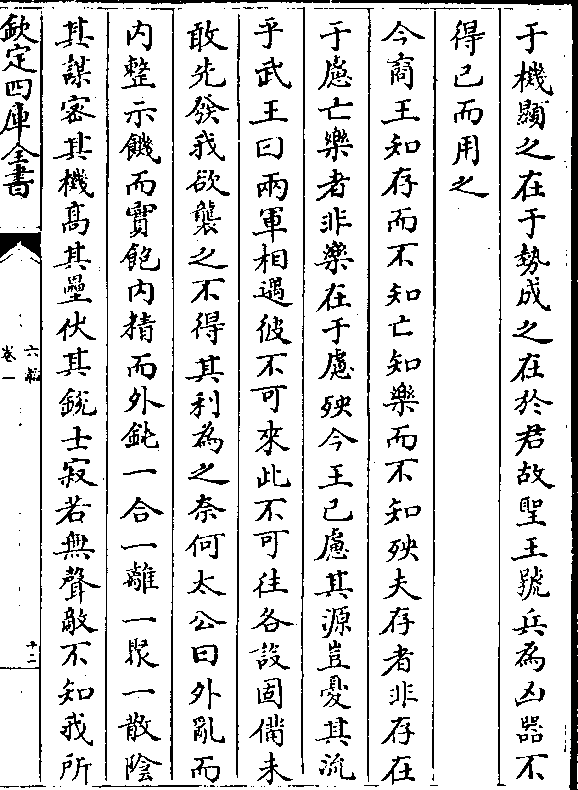 于機顯之在于勢成之在於君故聖王號兵為凶器不
得已而用之
今商王知存而不知亡知樂而不知殃夫存者非存在
于慮亡樂者非樂在于慮殃今王已慮其源豈憂其流
乎武王曰兩軍相遇彼不可來此不可往各設固備未
敢先發我欲襲之不得其利為之奈何太公曰外亂而
内整示饑而實飽内精而外鈍一合一離一聚一散隂
其謀宻其機髙其壘伏其鋭士寂若無聲敵不知我所
欽定四庫全書
六韜
卷一
十二